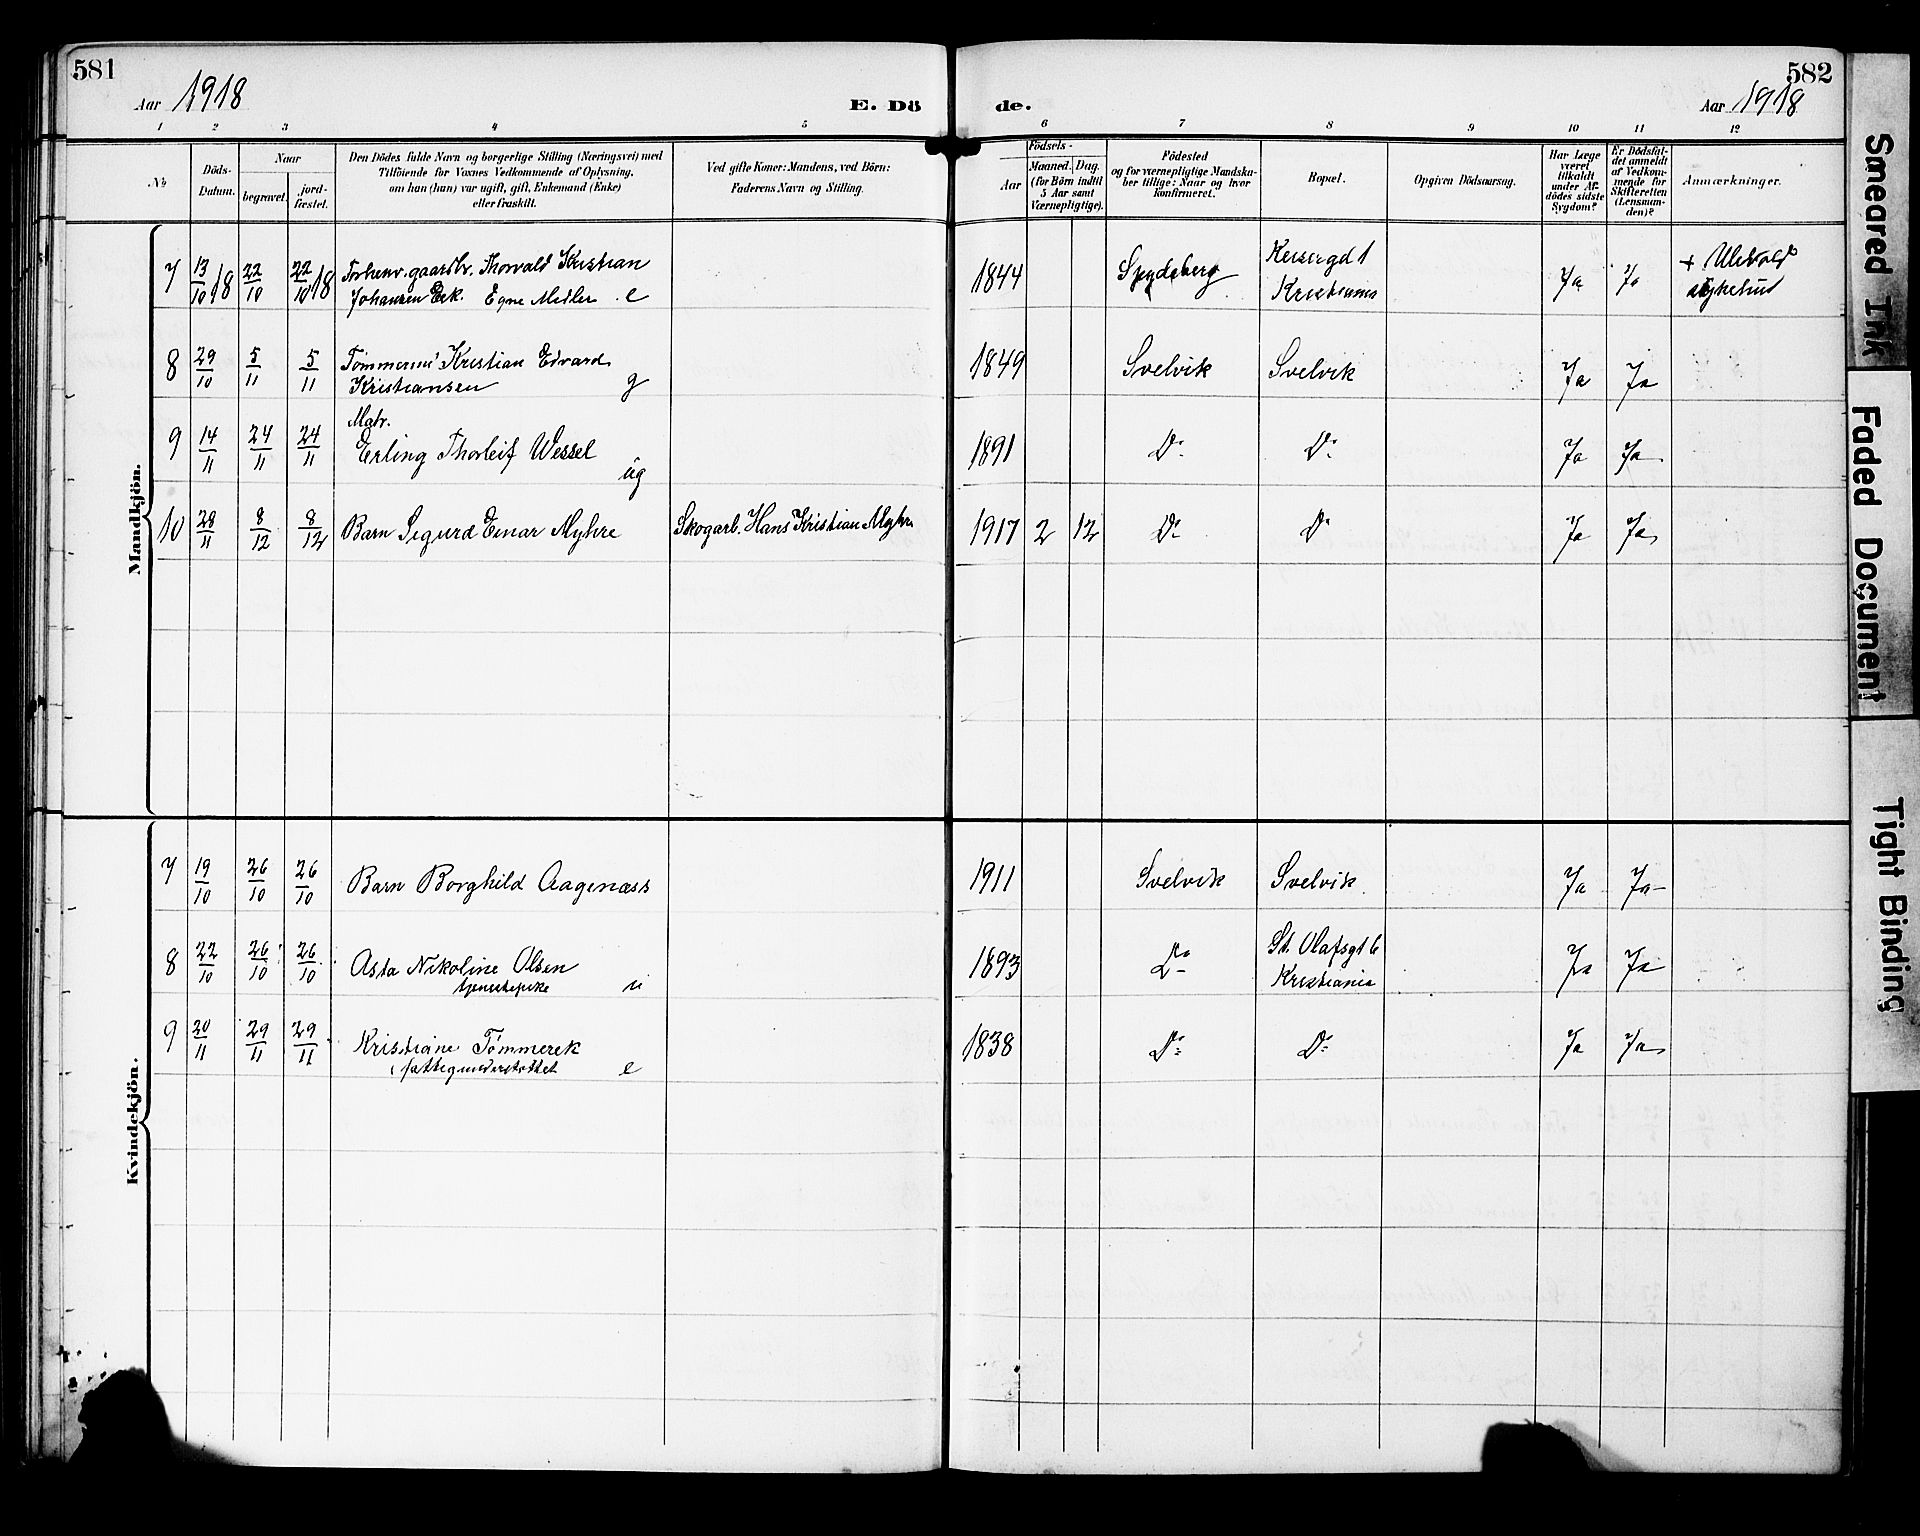 581
Aar 1918
E. Dö
de.
582
Aar 1918
1 2 3 4 5 6 7 8 9 10 11 12
No.
Döds-
Datum.
Naar
begravet.
jord-
fæstet.
Den Dödes fulde Navn og borgerlige Stilling (Næringsvei) med
Tilföiende for Voxnes Vedkommende af Oplysning,
om han (hun) var ugift, gift, Enkemand (Enke)
eller fraskilt.
Ved gifte Koner: Mandens, ved Börn:
Faderens Navn og Stilling.
Födsels-
Aar
Maaned. Dag.
(for Börn indtil
5 Aar samt
Værnepligtige).
Födested
og for værnepligtige Mandska-
ber tillige: Naar og hvor
konfirmeret.
Bopæl.
Opgiven Dödsaarsag.
Har Læge
været
tilkaldt
under Af-
dödes sidste
Sygdom?
Er Dödsfal-
det anmeldt
af Vedkom-
mende for
Skifteretten
(Lensman-
den)?
Anmærkninger.
Mandkjön.
7 13/10 18 22/10 22/10 18 Forhenv. gaardbr. Thorvald Kristian
Johansen Eek. Egne Midler e
1844 Spydeberg
Keisergd 1
Kristiania
Ja Ja
+ Ulevold
sykehus
8 29/10 5/11 5/11 Tømmerm. Kristian Edvard
Kristiansen g
1849 Svelvik Svelvik Ja Ja
9 14/11 24/11 24/11 Matr.
Erling Thorleif Wessel
ug
1891 Do Do Ja Ja
10 28/11 8/12 8/12 Barn Sigurd Einar Myhre Skogarb. Hans Kristian Myhre 1917 2 12 Do Do Ja Ja
Kvindekjön.
7 19/10 26/10 26/10 Barn Borghild Aagenæss 1911 Svelvik Svelvik Ja Ja
8 22/10 26/10 26/10 Asta Nikoline Olsen
tjenestepike u
1893 Do
St. Olafsgt 6
Kristiania
Ja Ja
9 20/11 29/11 29/11 Kristiane Tømmerek
fattigunderstøttet e
1838 Do Do Ja Ja
Smeared Ink
Faded Document
Tight Binding